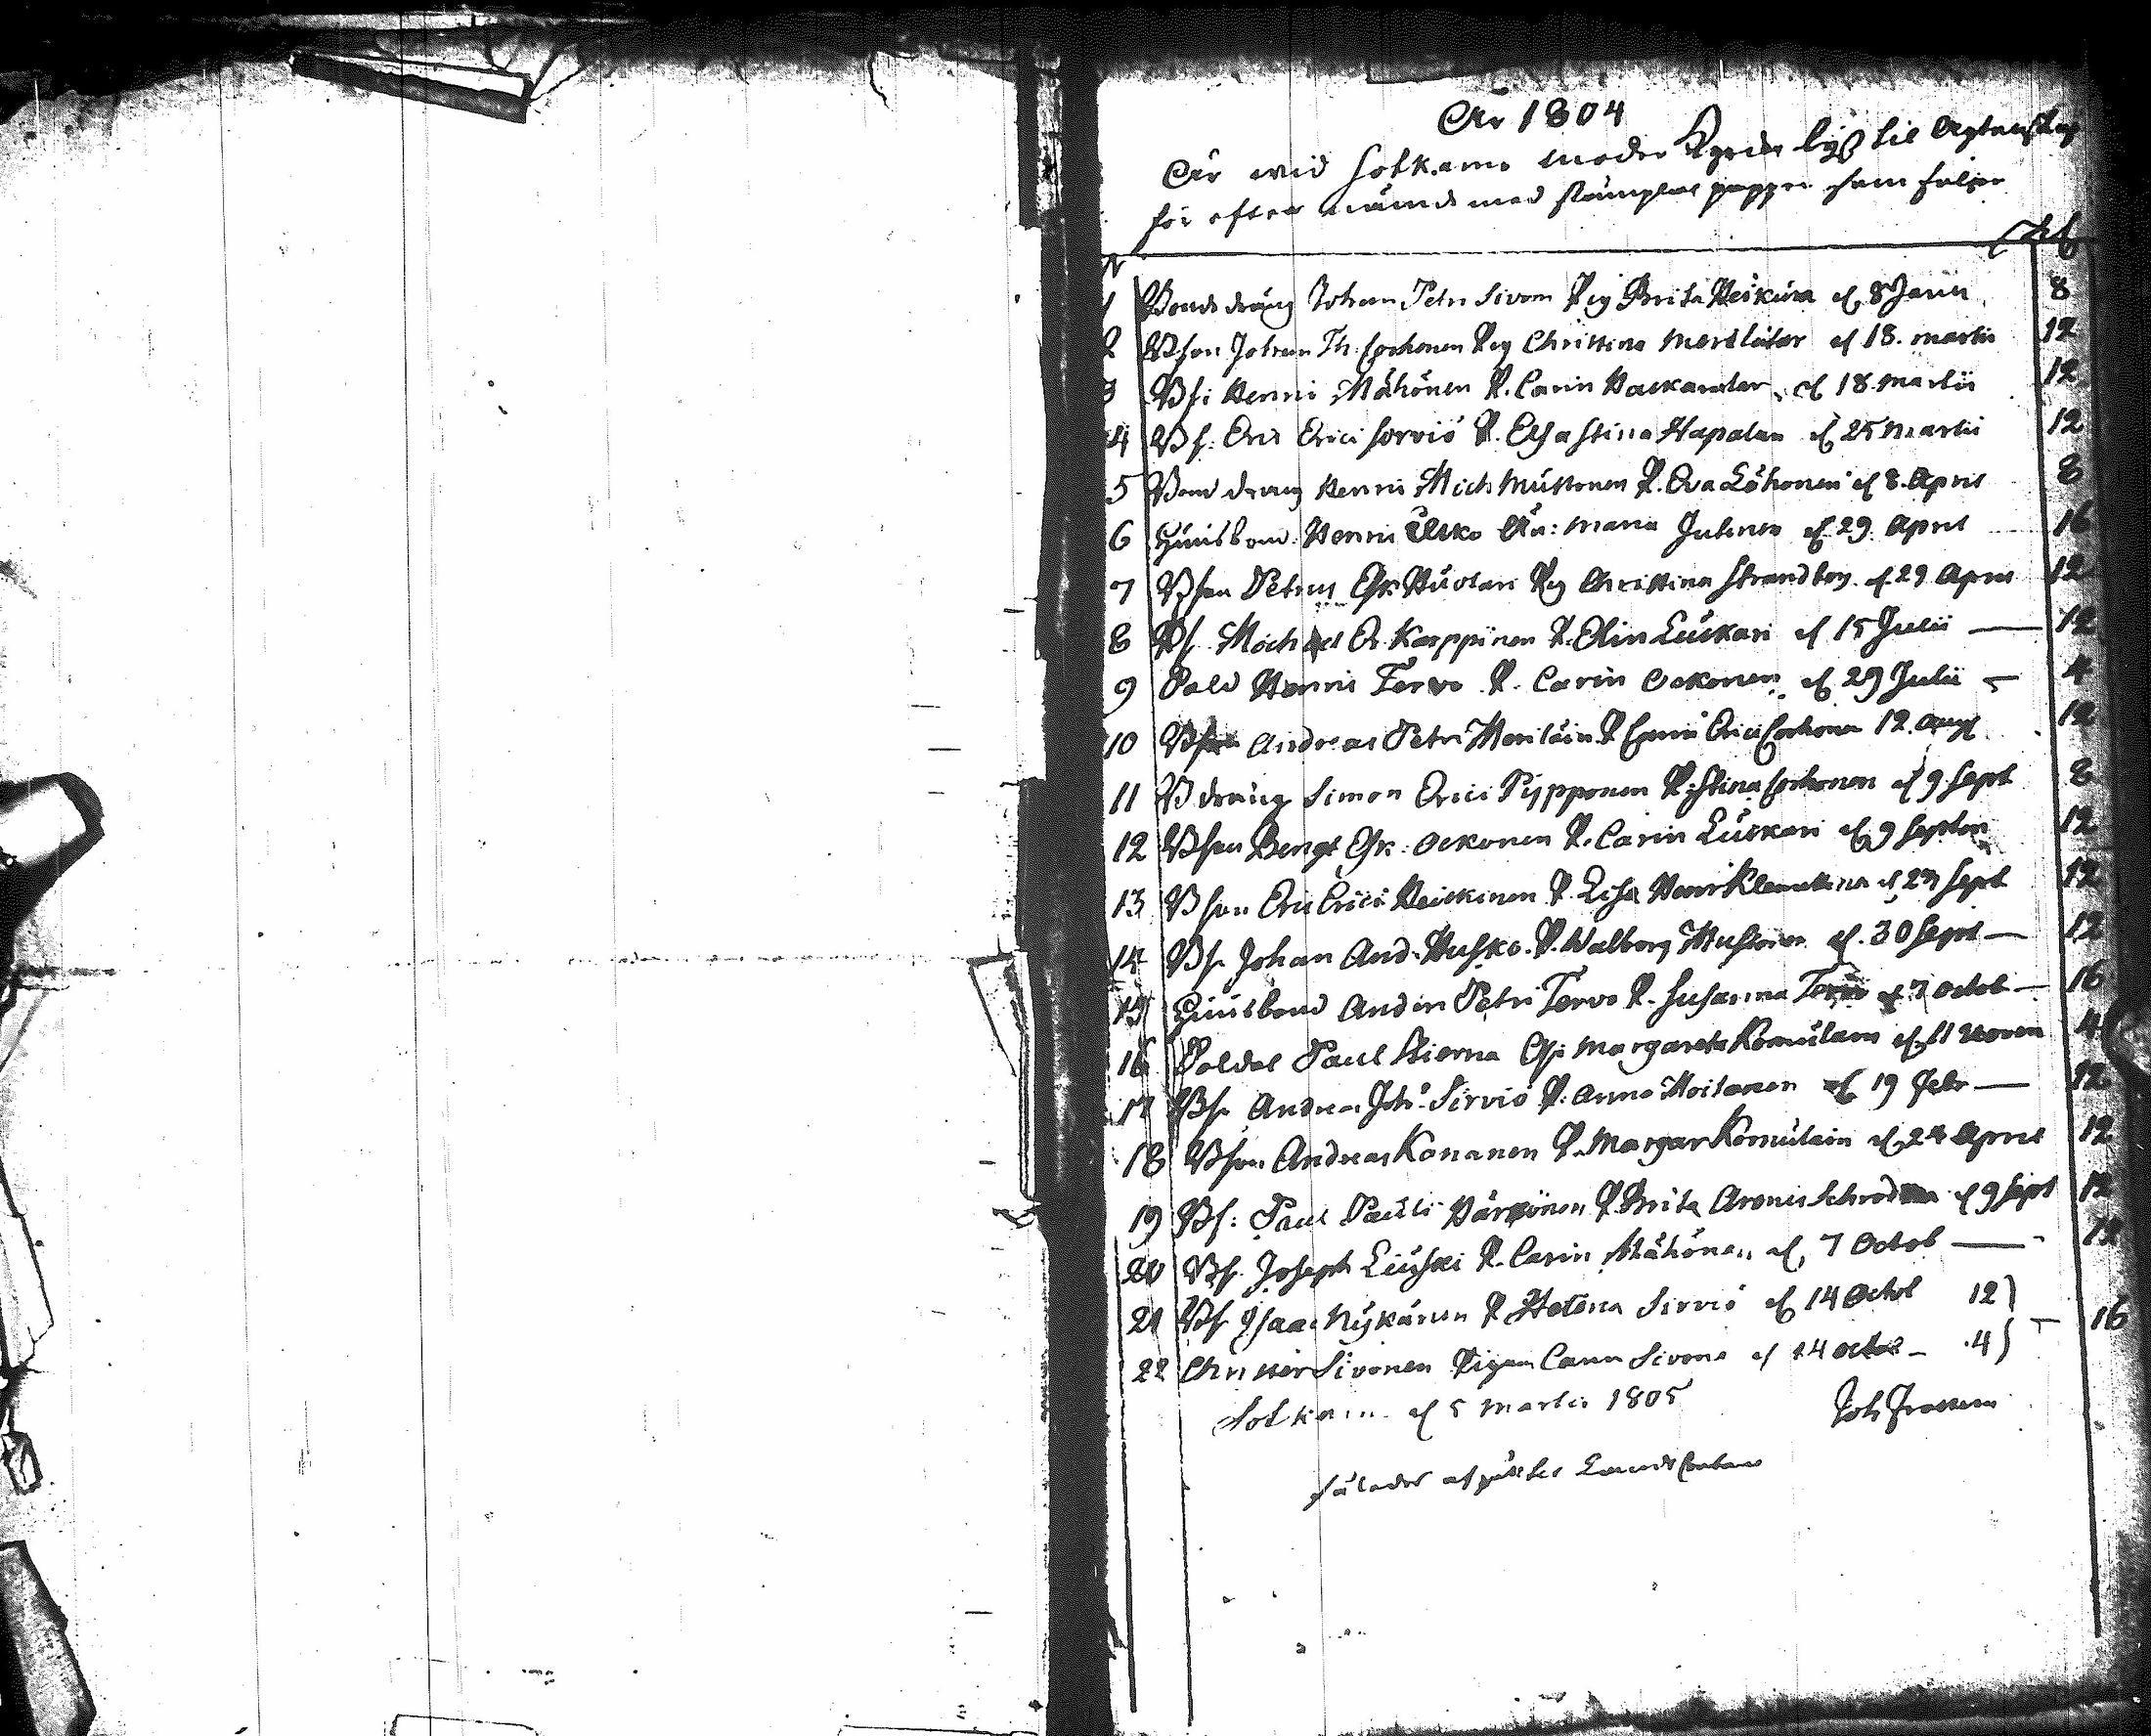 År 1804
År wid Sotkamo moder Kyrka lyst til Ägtenskap
för efter nämde med stämplat papper som följer
N
1 Bonde dräng Johan Petri Sivon Pig Brita Heikura d 8 Janu 8
2 Bson Johan Th. Corhonen Pig Christina Meriläter d 18. martii 12
3 Bs: Henric Mähönen P. Carin Hackarater d 18 Martii 12
4 Bs: Eric Erici Sorviö P. Elsa Stina Hapalan d 25 Martii 12
5 Bond dräng Henric Mich Mustonen P. Eva Löhonen d 8. April 8
6 Huusbond Henric Äa: Maria Juntunen d 29 April 16
7 Bson Petrus Esk Huotari Pig Christina Strandboy d 29 April 12
8 Bs. Michael Er. Karppinen P. Elin Luukari d 15 Julii 12
9 Sold Henric Tervo P. Carin Ockonen d 29 Julii 4
10 Bson Andreas Petri Meriläin P Carin Erici Corhonen 12 aug 12
11 B dräng Simon Erici Pypponen P. Stina Corhonen d 9 Sept 8
12 Bson Bengt Esk: Ockonen P. Carin Luukari d 9 Septem 12
13 Bson Eric Erici Heiskinen P. Lisa Henr Klemettinen d 23 Sept 12
14 Bs. Johan And. Husko P. Walborg Mustonen d. 30 Sept 12
15 Huusbond Anders Petri Tervo P. Susanna Tervo d 7 Octob 16
16 Soldat Paul Stierna Margareta Komulain d 11 Novem 4
17 Bs. Andreas Joh. Sirviö P. Anna Moilanen d 19 Febr 12
18 Bson Andreas Kananen P. Margar Komulain d 24 April 12
19 Bs: Paul Pauli Härkönen P. Brita Aronis d 9 Sept 12
20 Bs. Joseph P. Carin Mähönen d 7 Octob 12
21 Bs. Isaac Nykänen P Helena Sirviö d 14 Octob 12
22 Christer Sivonen Pigan Carin Sivone d 14 octob 4 16
Sotkamo d 5 Martii 1805 Joh
således til